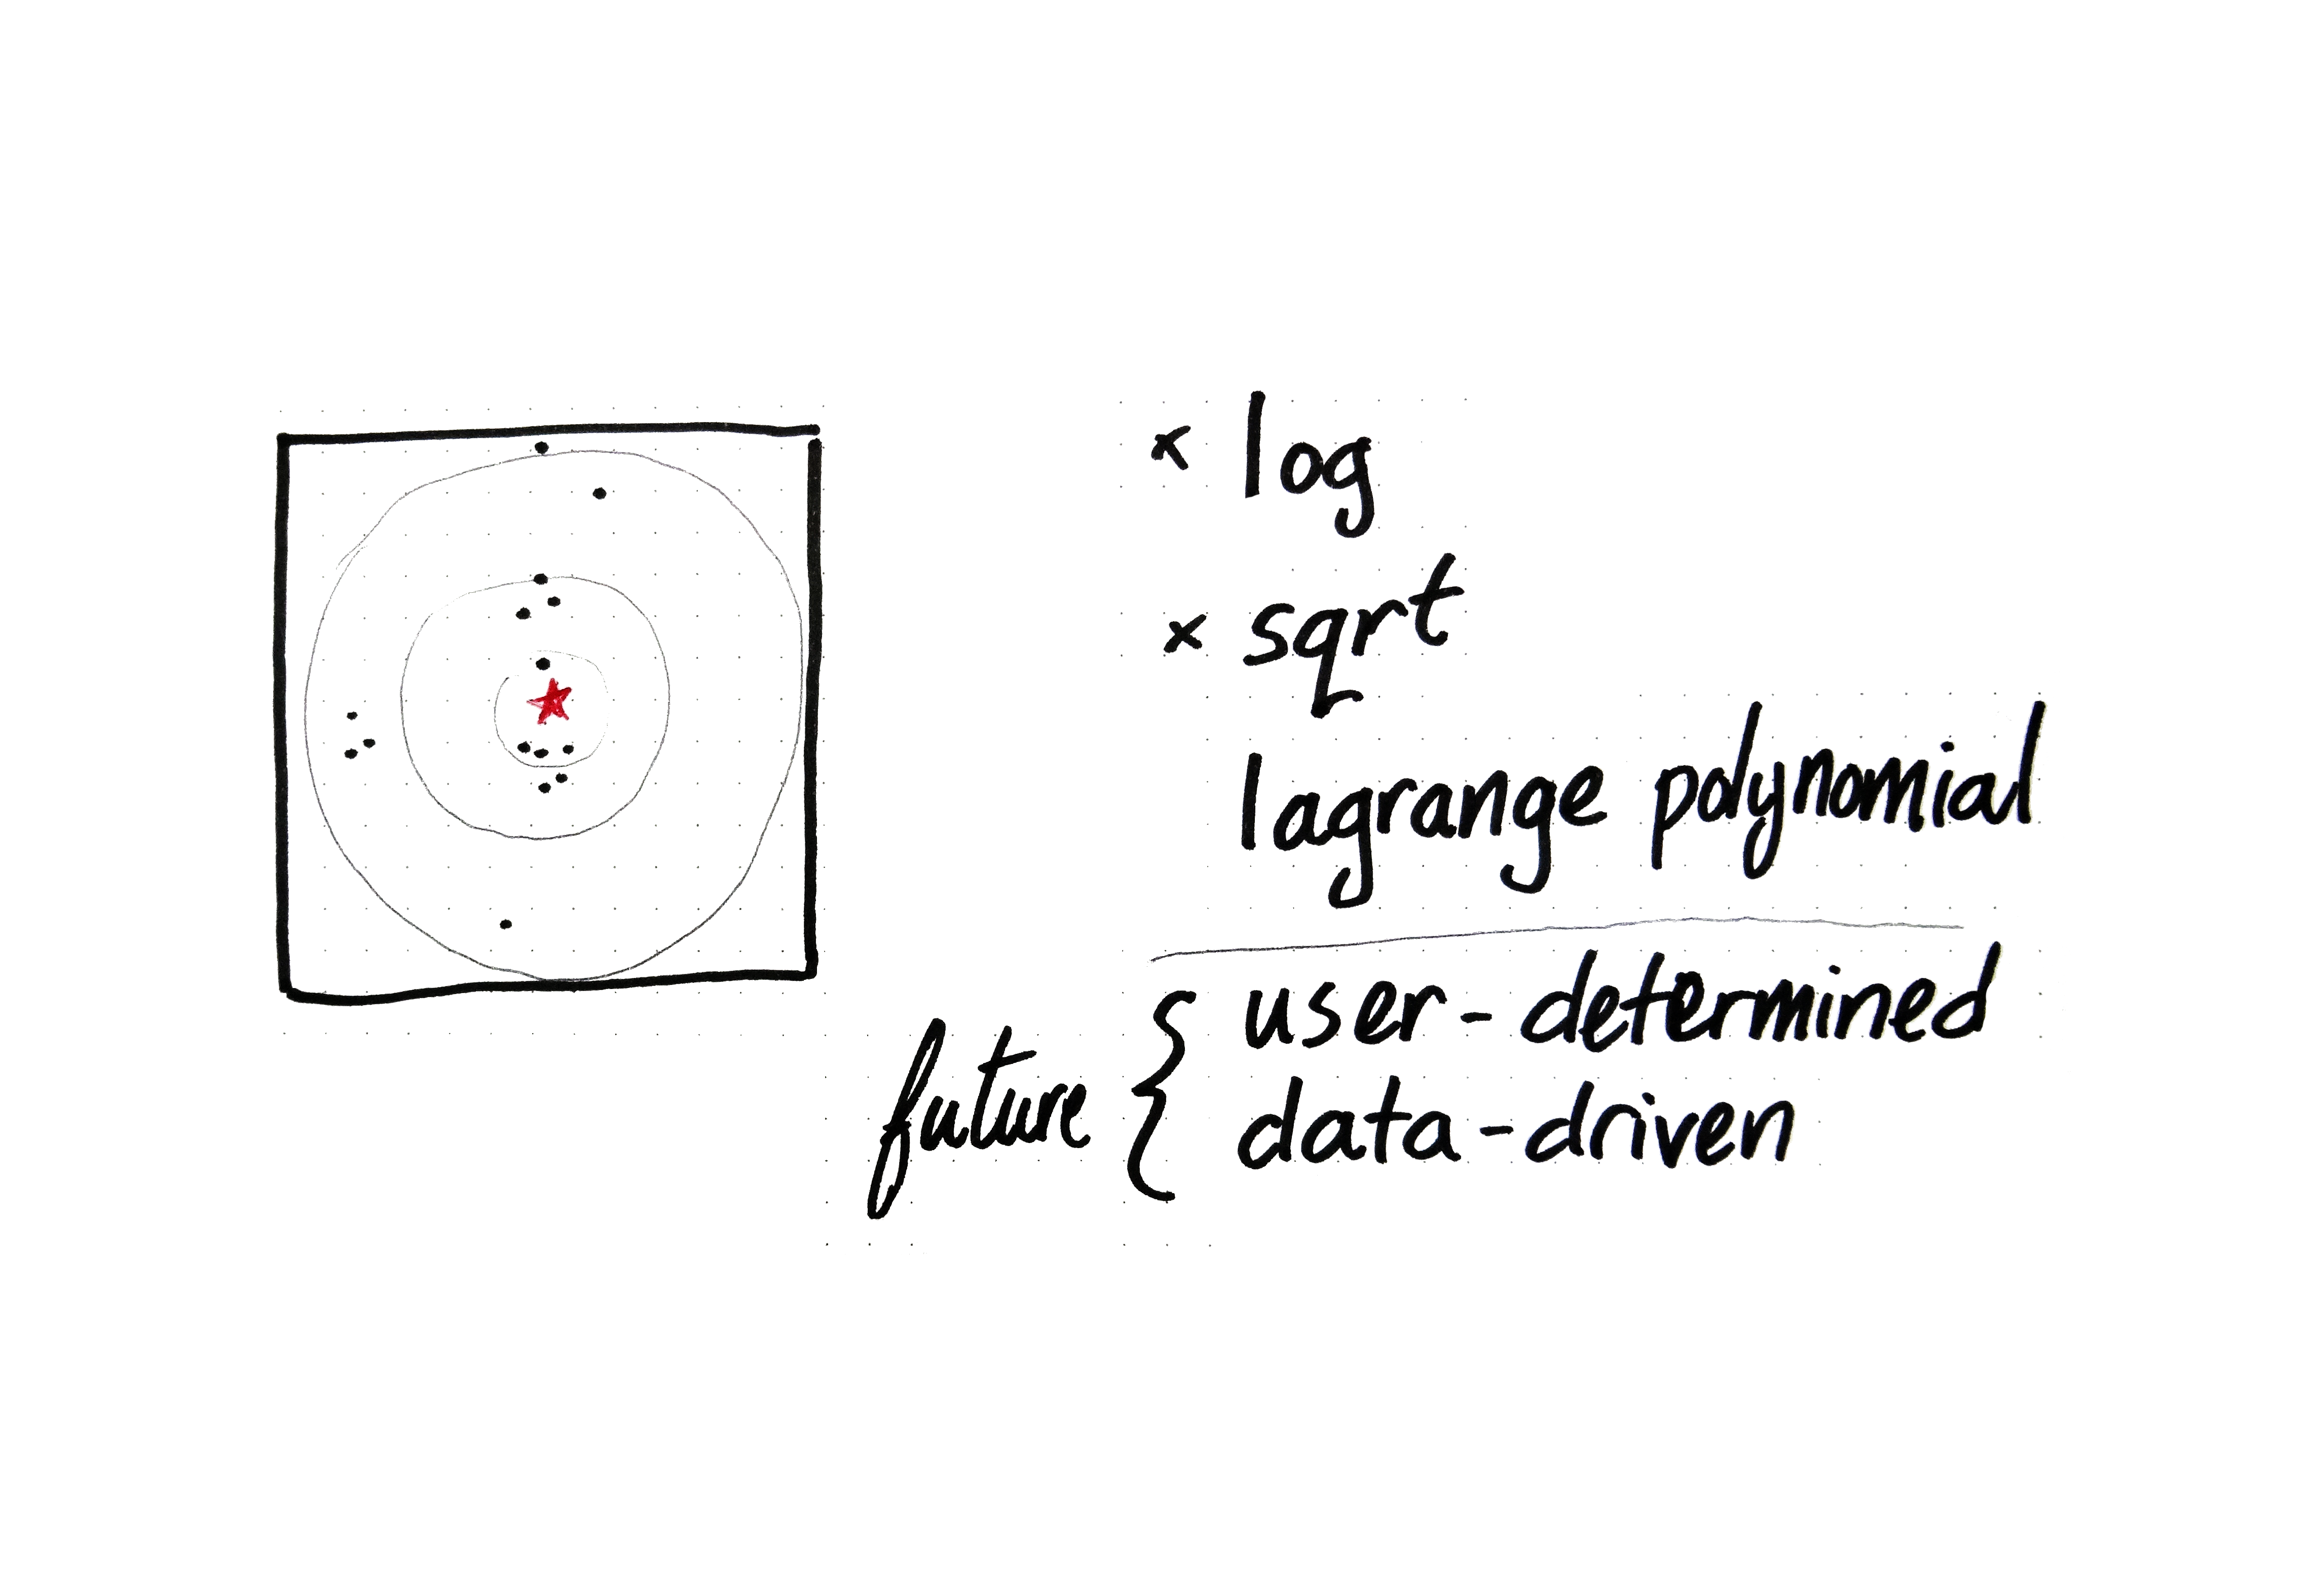 × log
× sqrt
lagrange polynomial
future { user-determined
data-driven